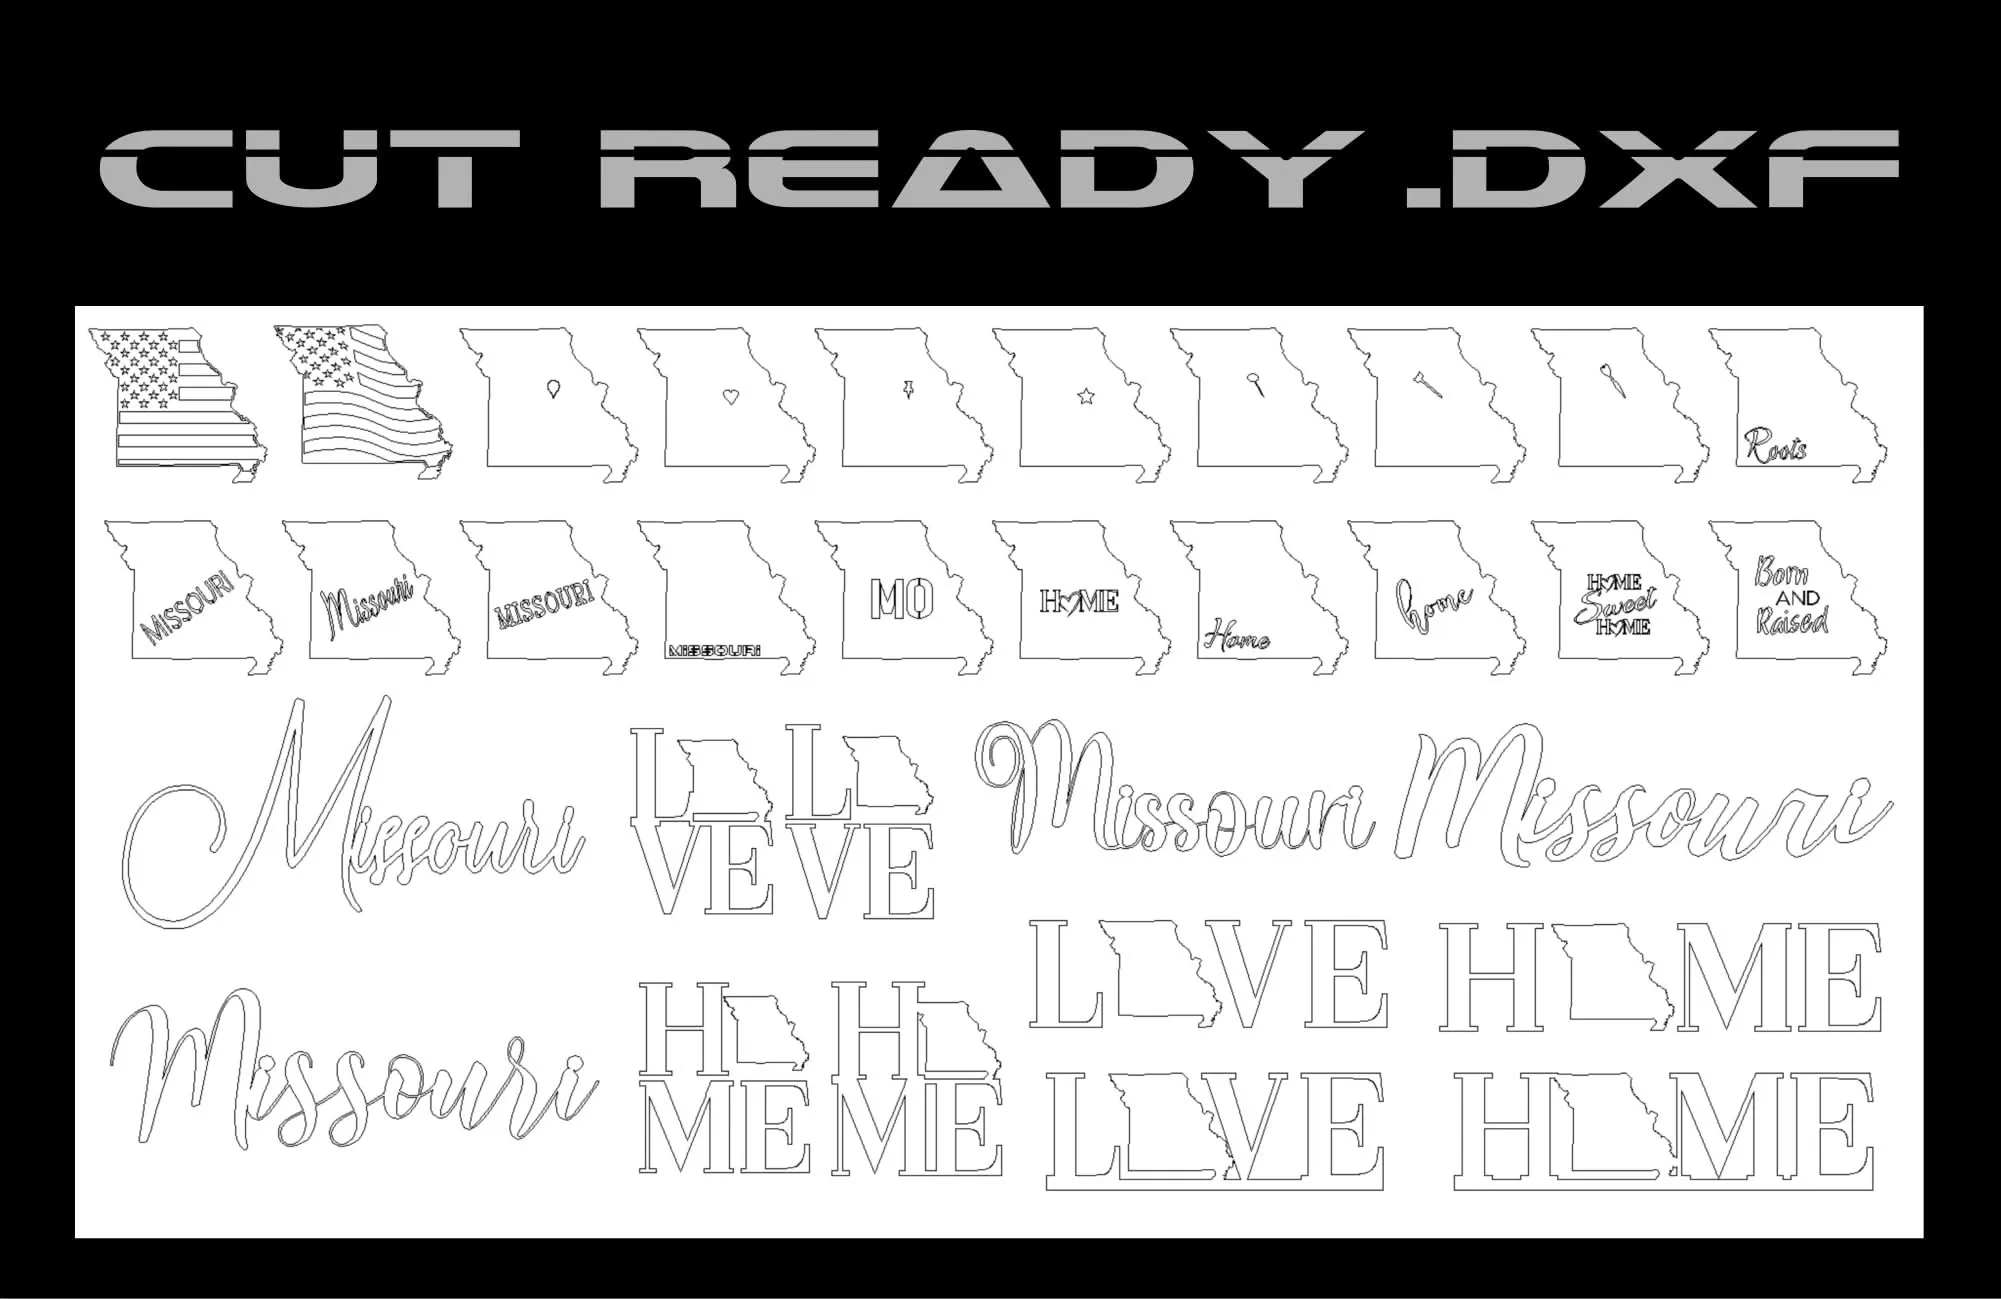 CUT READY .DXF
Roots
MISSOURI
Missouri
MISSOURI
MISSOURI
MO
HOME
Home
home
HOME
Sweet
HOME
Born
AND
Raised
Missouri
L
VE
L
VE
Missouri
Missouri
L VE
H ME
Missouri
H
ME
H
ME
L VE
H ME